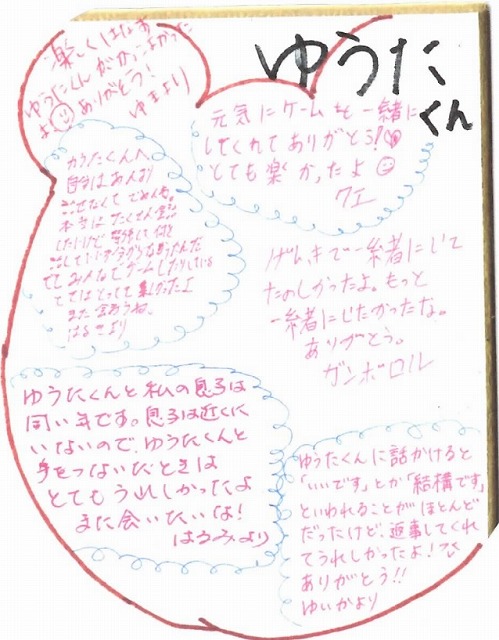 ゆうたくん
楽しくはなす
ゆうたくんがかっこよかった
よ ありがとう!
ゆまより
元気にゲームを一緒に
してくれてありがとう!♡
とても楽かったよ☺
クエ
ゆうたくんへ
自分はあんまり
話せなくてごめんね。
本当はたくさん会話
したいけど緊張して何を
話していいか
でもみんなでゲームしたりしている
ときはとっても楽しかったよ
また会おうね
はるきより
げんきで一緒にじて
たのしかったよ。もっと
一緒にじたかったな。
ありがとう。
ガンボロル
ゆうたくんと私の息子は
同い年です。息子は近くに
いないので、ゆうたくんと
手をつないだときは
とてもうれしかったよ
また会いたいな!
はるみより
ゆうたくんに話かけると
「いいです」とか「結構です」
といわれることがほとんど
だったけど、返事してくれ
てうれしかったよ!
ありがとう!!
ゆいかより